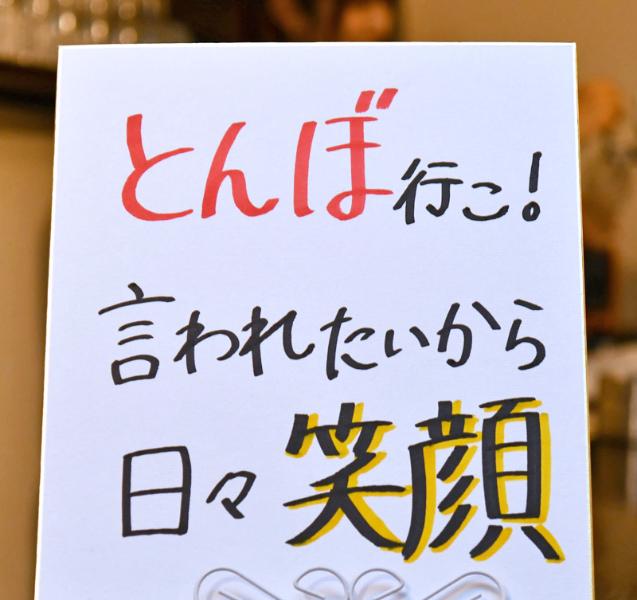 とんぼ行こ!
言われたいから
日々笑顔